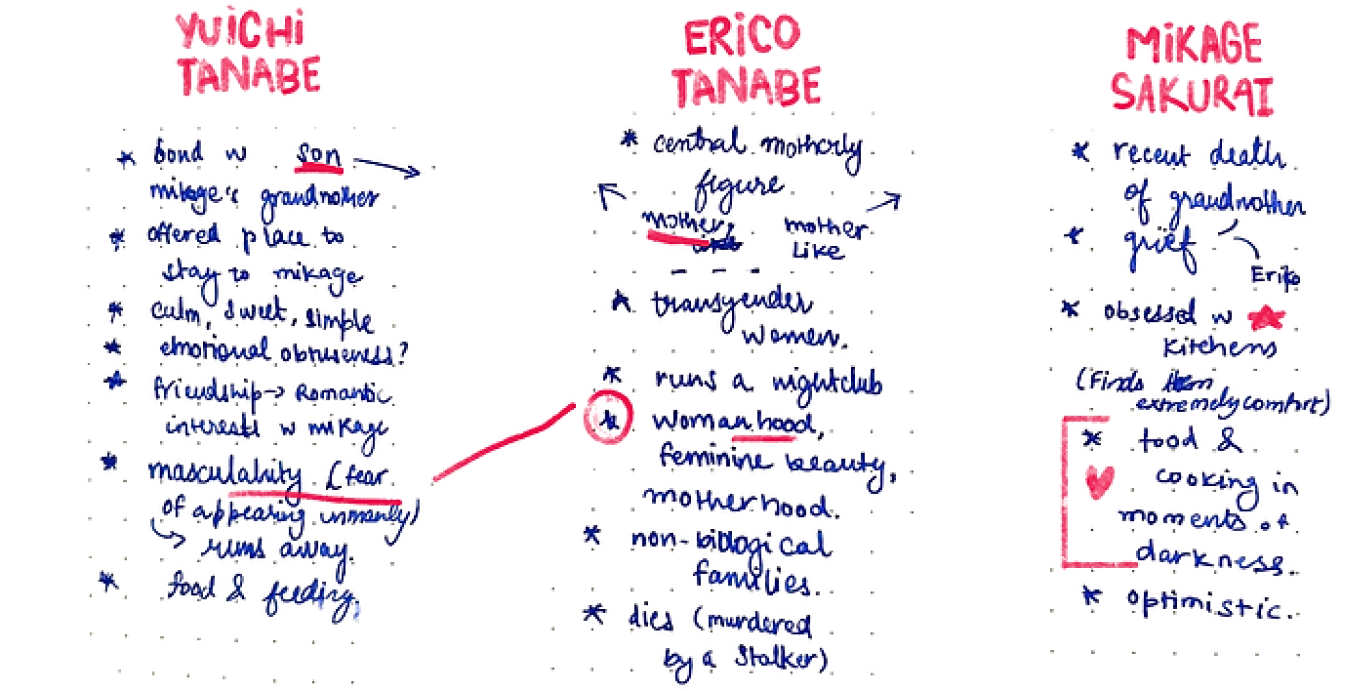 YUICHI
TANABE
* bond w son →
mikage's grandmother
* offered place to
stay to mikage
* calm, sweet, simple
* emotional obtuseness?
* friendship → Romantic
interests w mikage
* masculahity (fear
of appearing unmanly)
↳ runs away.
* food & feeding.
ERICO
TANABE
* central motherly
figure
mother, mother
like
* transgender
women.
* runs a nightclub
* womanhood,
feminine beauty,
motherhood.
* non-biological
families.
* dies (murdered
by a stalker)
MIKAGE
SAKURAI
* recent death
of grandmother
* grief
Eriko
* obsessed w
kitchens
(Finds them
extremely comfort)
* food &
cooking in
moments of
darkness.
* optimistic.